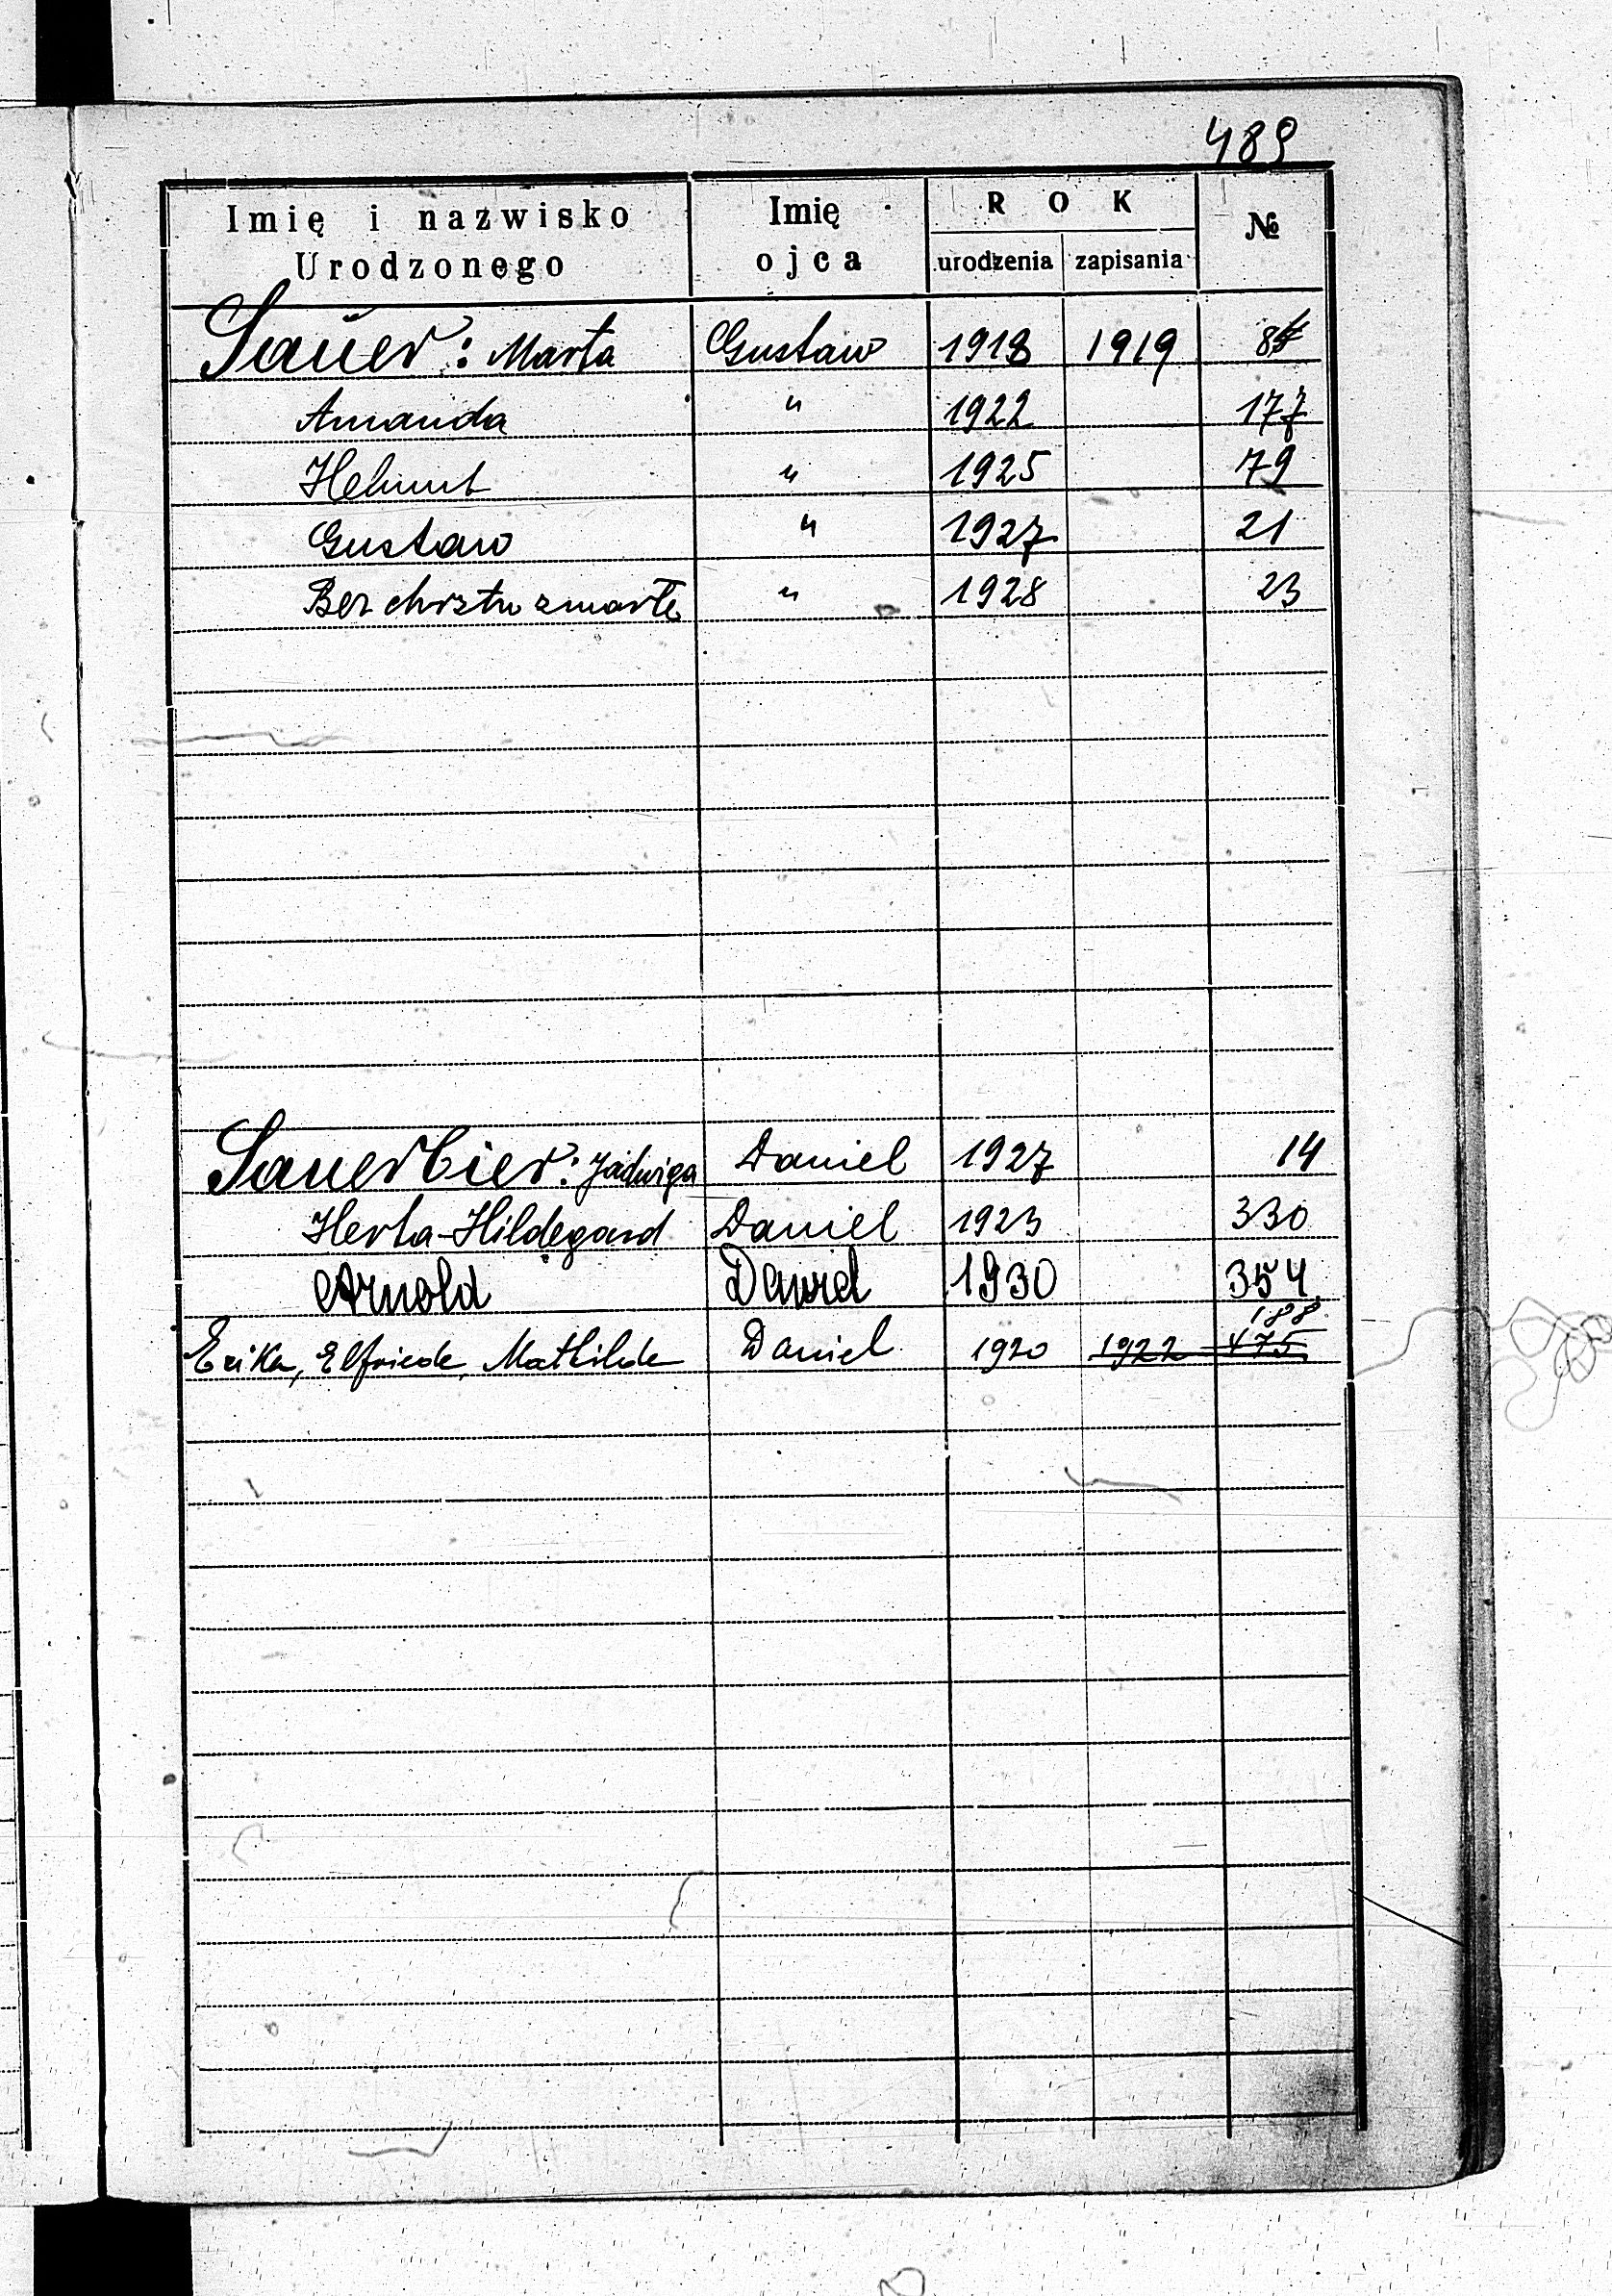 489
Imię i nazwisko Urodzonego Imię ojca ROK urodzenia zapisania №
Sauer: Marta Gustaw 1918 1919
Amanda " 1922 177
Helmut " 1925 79
Gustaw " 1927 21
Bez chrztu zmarłe " 1928 23
Sauerbier: Jadwiga Daniel 1927 14
Herta-Hildegard Daniel 1923 330
Arnold 1930 354
188
Erika, Elfriede, Mathilde Daniel 1920 1922 475